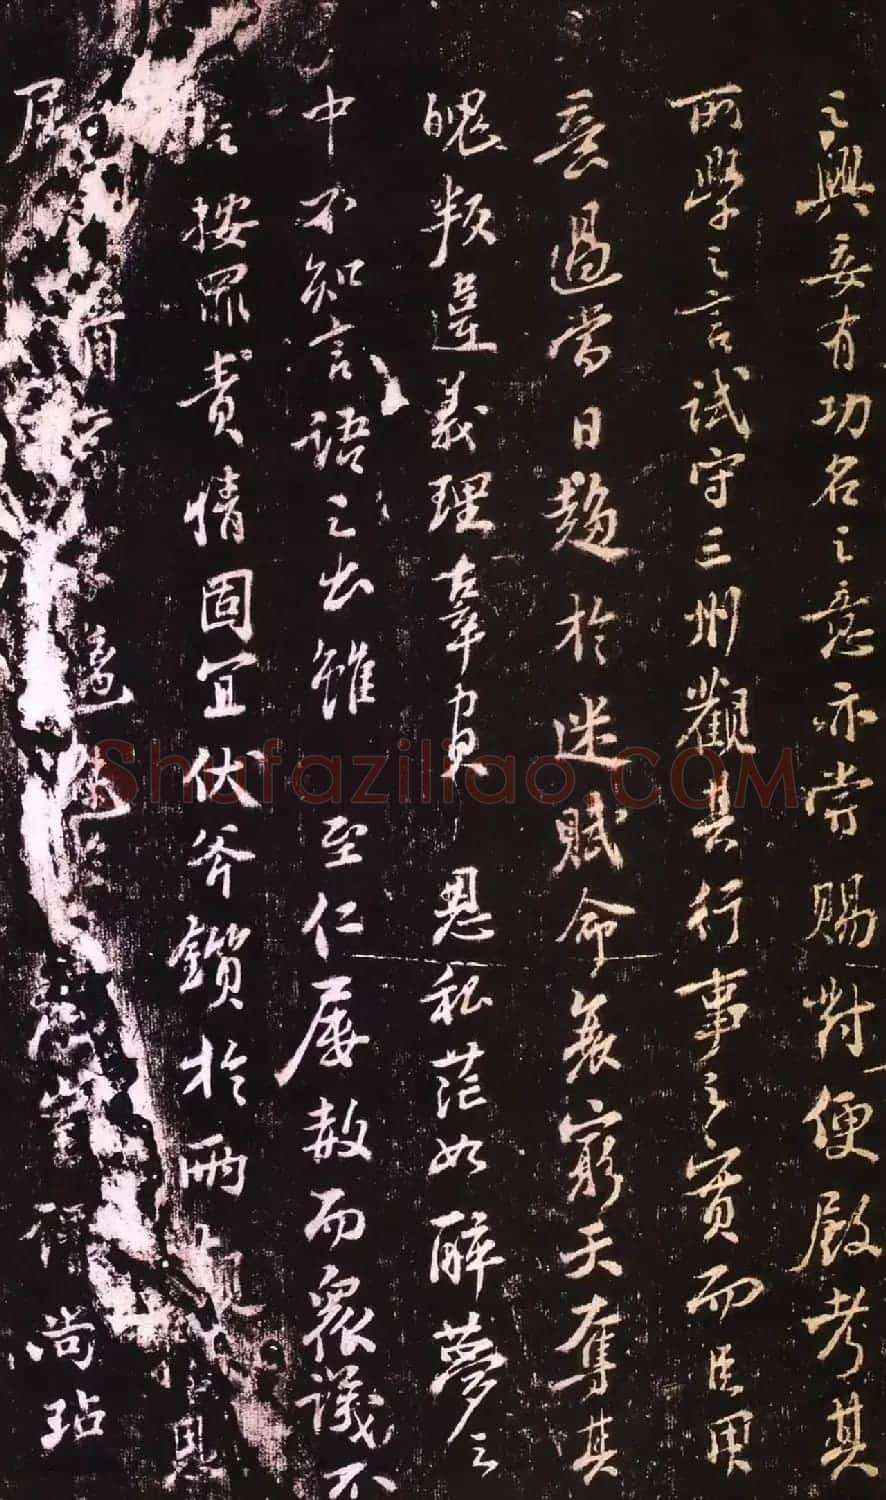 之興妄有功名之意亦嘗賜對便殿考其
所學之言試守三州觀其行事之實而臣用
意過當日趨於迷賦命衰窮天奪其
魄叛違義理辜負恩私茫如醉夢之
中不知言語之出雖至仁屢赦而衆議不
按罪責情固宜伏斧鑕於兩觀恩
屈尚玷
Shufaziliao.COM